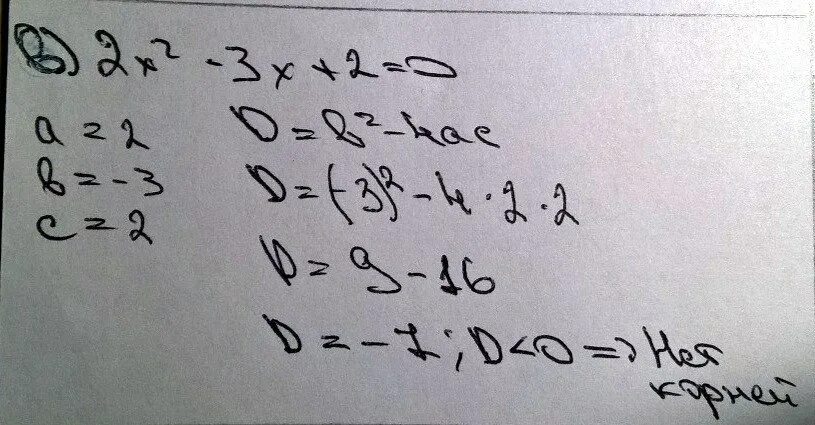 в) 2x² - 3x + 2 = 0
a = 2
b = -3
c = 2
D = b² - 4ac
D = (-3)² - 4 · 2 · 2
D = 9 - 16
D = -7; D < 0 => Нет
корней